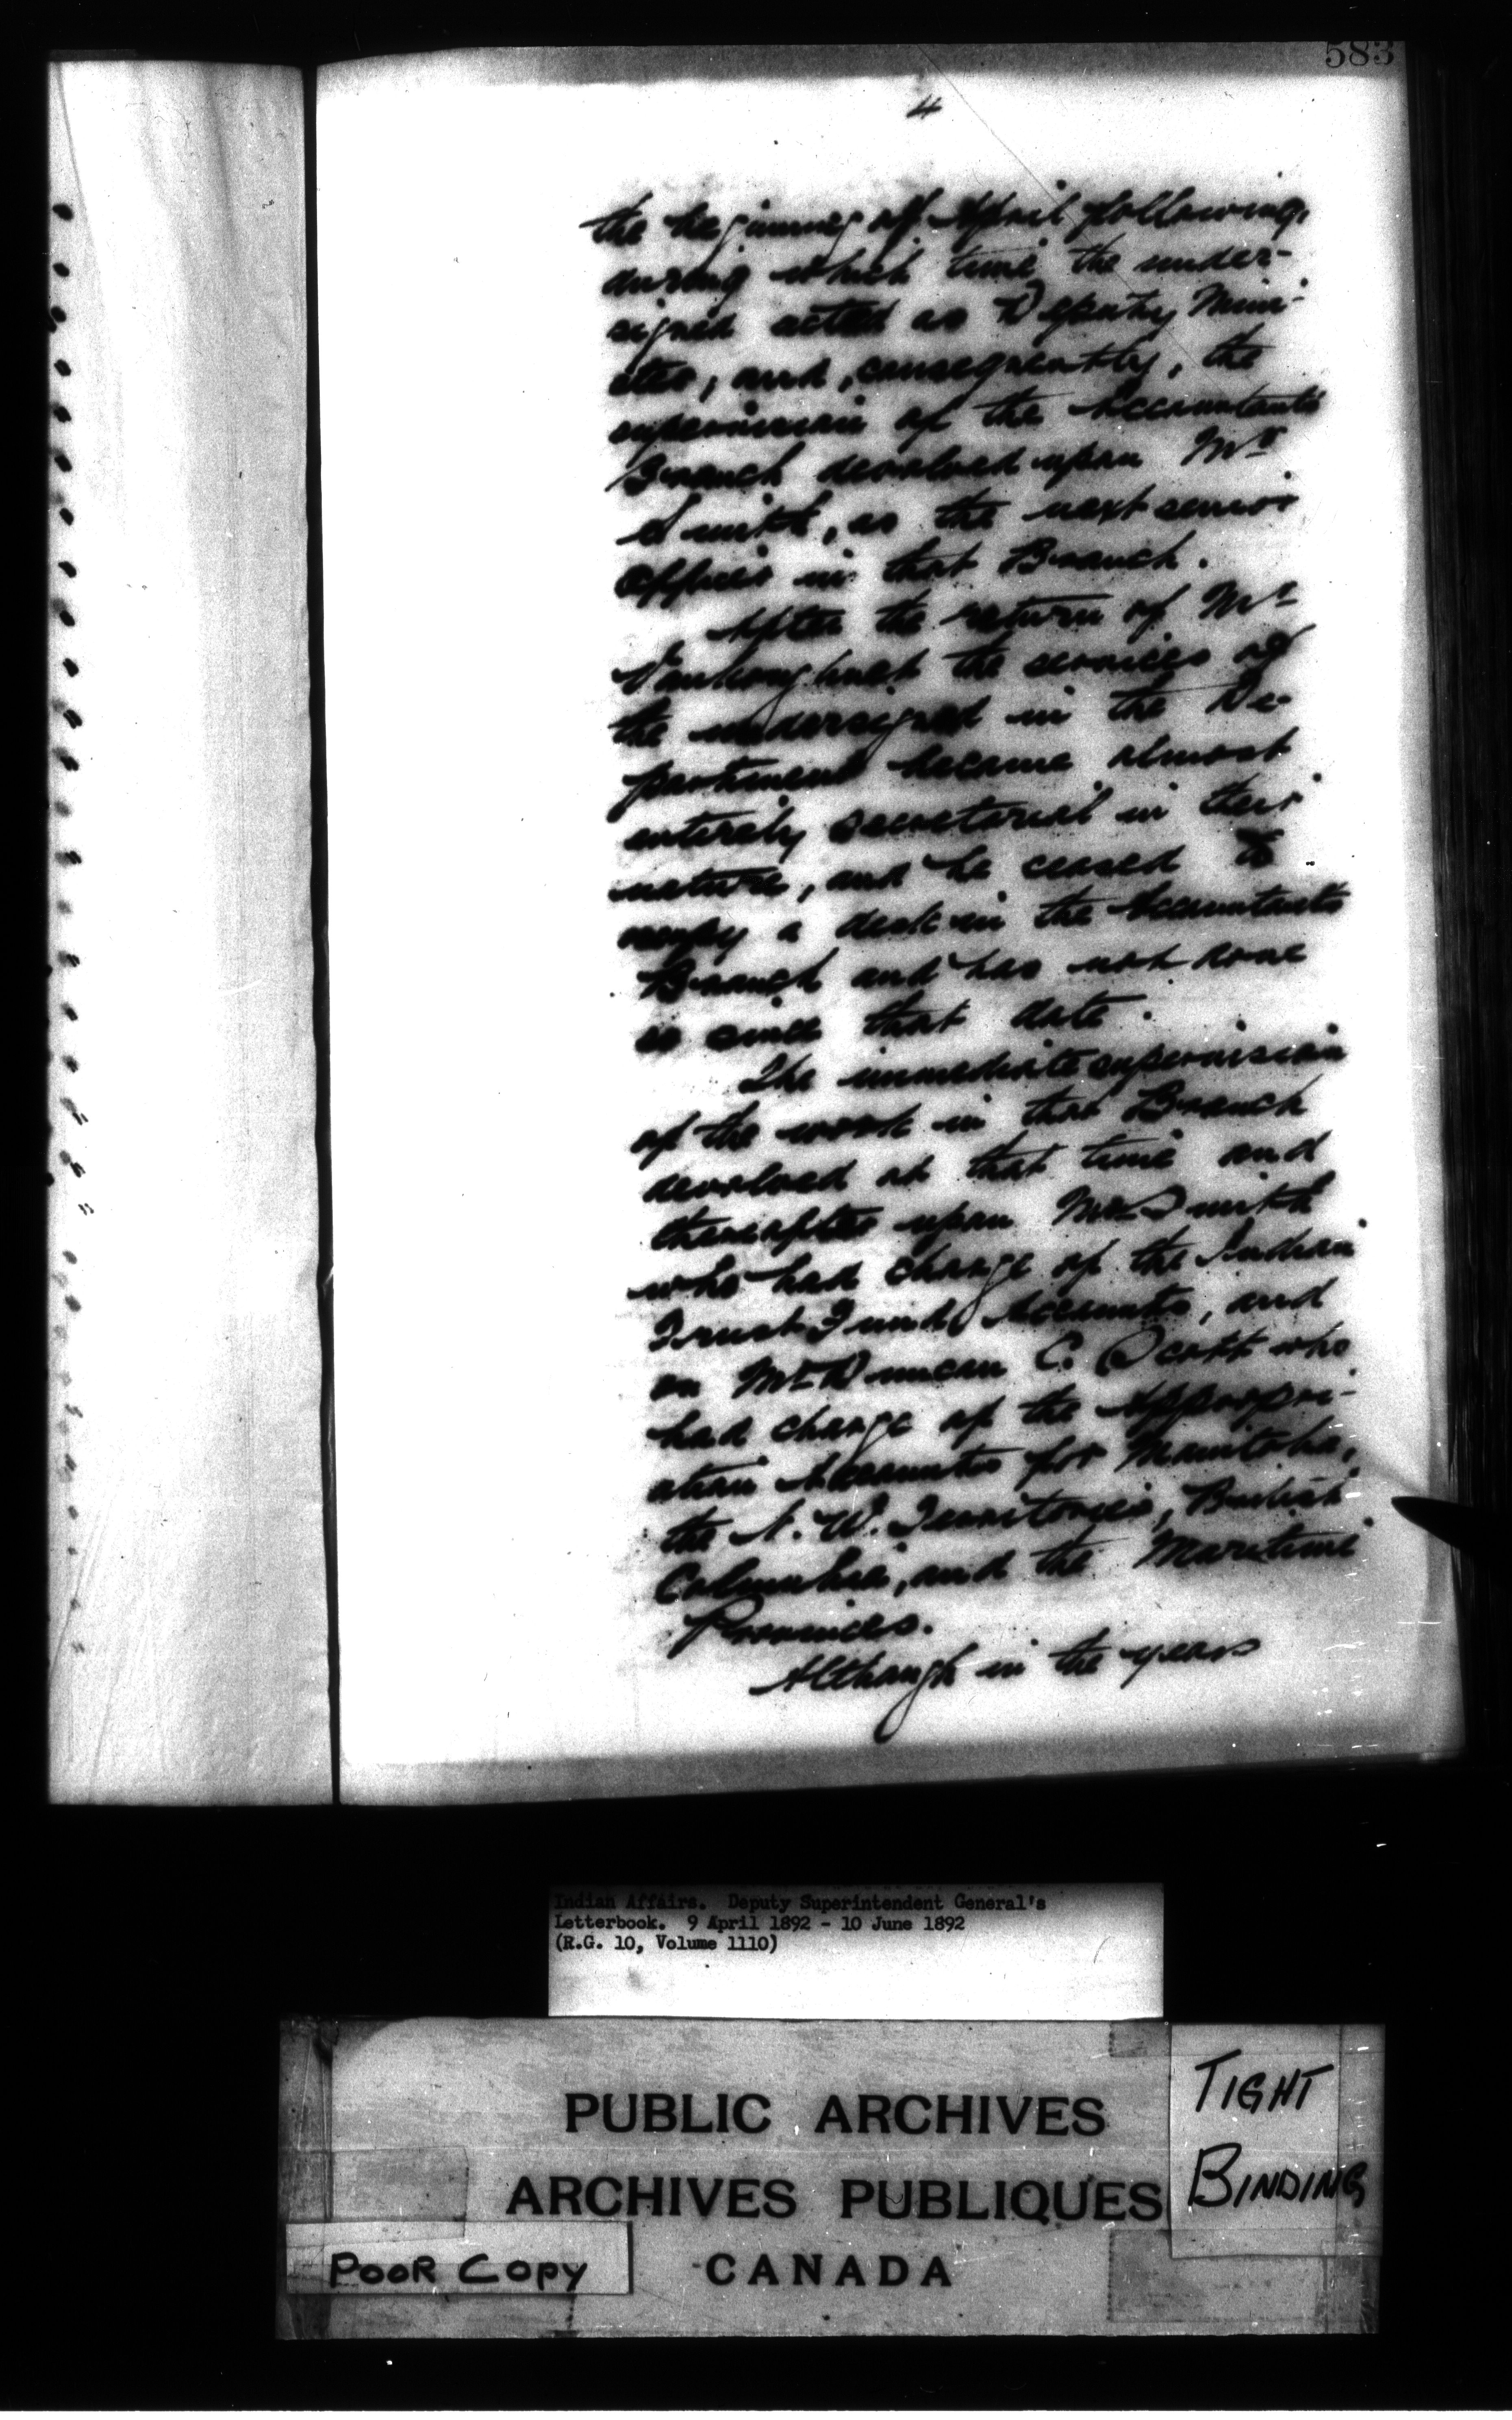 583
4
the beginning of April following,
during which time the under-
signed acted as Deputy Mini-
ster, and, consequently, the
supervision of the Accountant's
Branch devolved upon Mr
Smith, as the next senior
Officer in that Branch.
After the return of Mr
Vankoughnet the services of
the undersigned in the De-
partment became almost
entirely secretarial in their
nature, and he ceased to
occupy a desk in the Accountant's
Branch and has not done
so since that date.
The immediate supervision
of the work in that Branch
devolved at that time and
thereafter upon Mr Smith
who had charge of the Indian
Trust Fund Accounts, and
on Mr Duncan C. Scott who
had charge of the Appropri-
ation Accounts for Manitoba,
the N. W. Territories, British
Columbia, and the Maritime
Provinces.
Although in the years
Indian Affairs. Deputy Superintendent General's
Letterbook. 9 April 1892 - 10 June 1892
(R.G. 10, Volume 1110)
PUBLIC ARCHIVES
ARCHIVES PUBLIQUES
CANADA
TIGHT
BINDING
POOR COPY